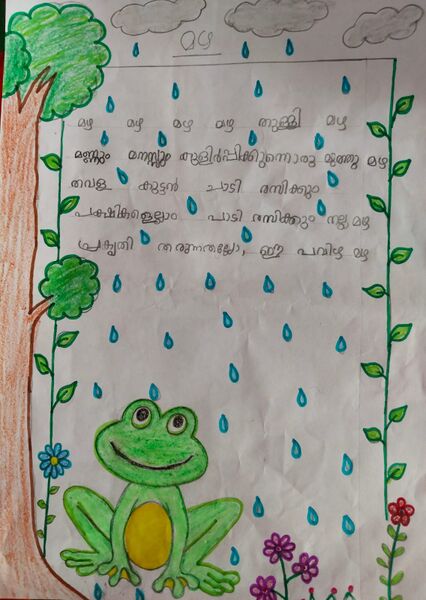 മഴ
മഴ മഴ മഴ മഴ തുള്ളി മഴ
മണ്ണും മനസ്സും കുളിർപ്പിക്കുന്നൊരു മുത്തു മഴ
തവള കുട്ടൻ ചാടി രസിക്കും
പക്ഷികളെല്ലാം പാടി രസിക്കും നല്ല മഴ
പ്രകൃതി തരുന്നതല്ലോ, ഈ പവിഴ മഴ